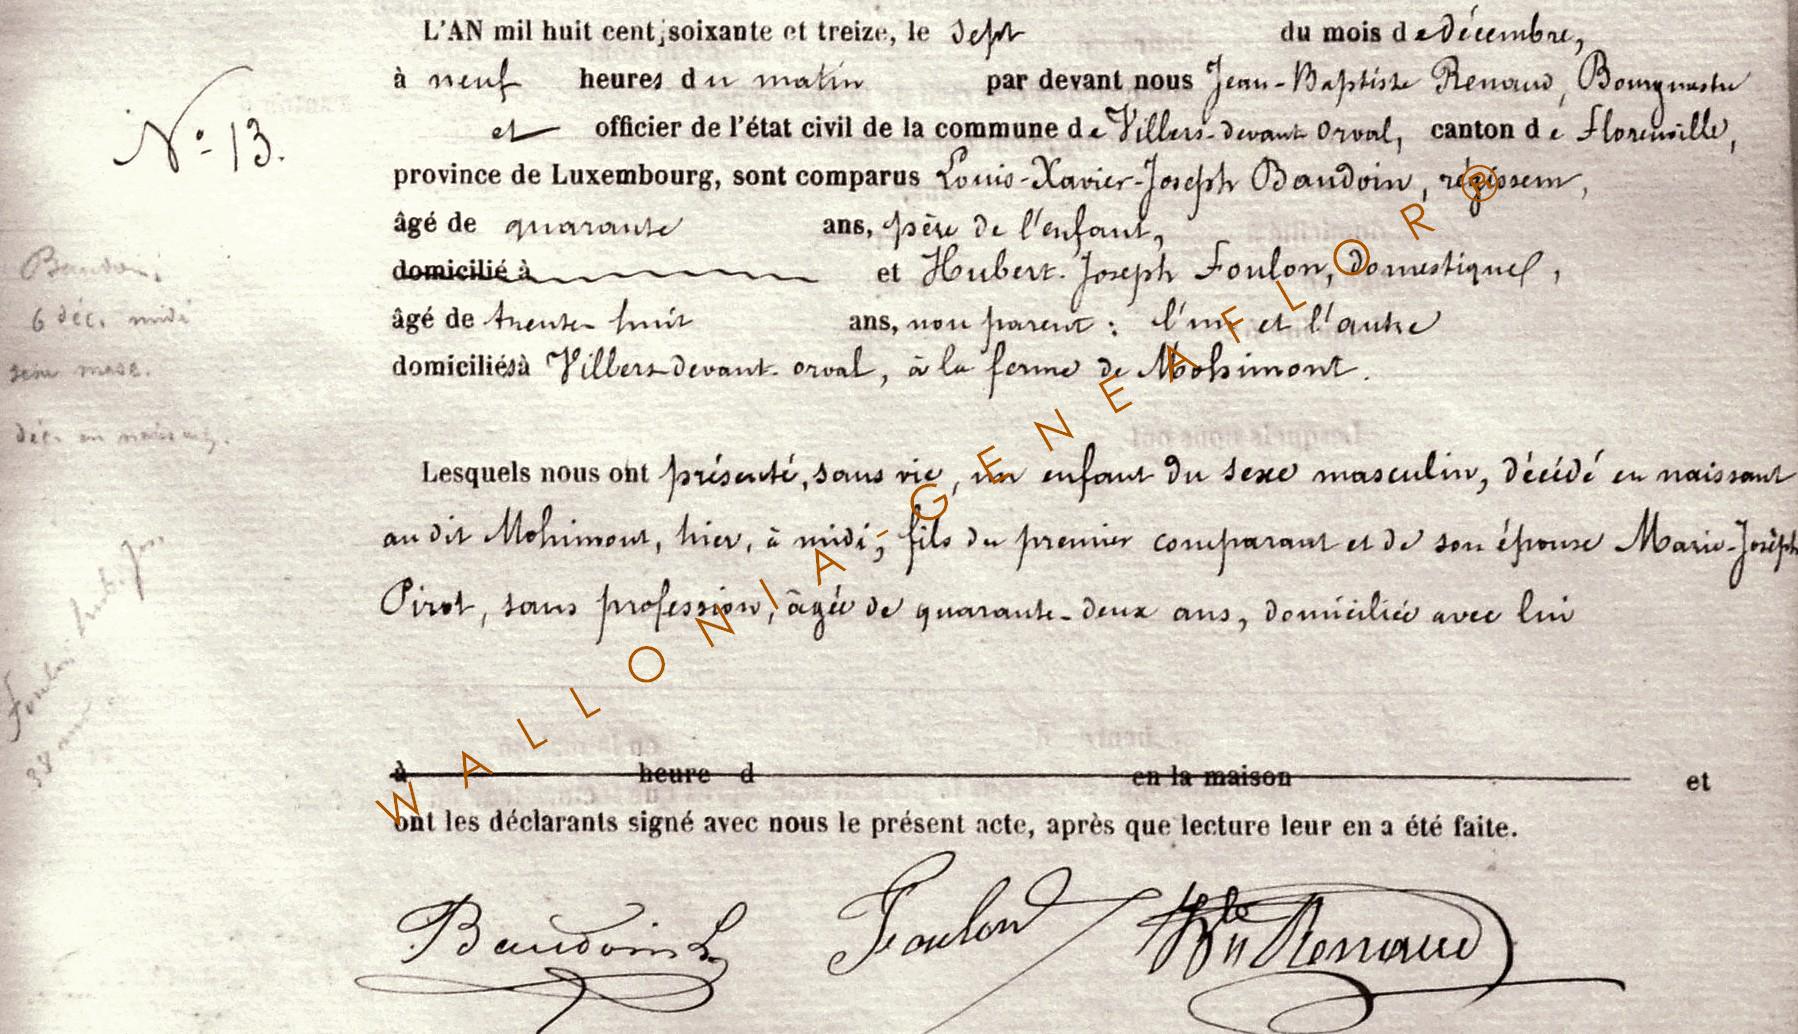 L'AN mil huit cent soixante et treize, le sept du mois de décembre,
à neuf heures du matin par devant nous Jean-Baptiste Renaud, Bourgmestre
et officier de l'état civil de la commune de Villers-devant-Orval, canton de Florenville,
province de Luxembourg, sont comparus Louis-Xavier-Joseph Baudoin, régisseur,
âgé de quarante ans, père de l'enfant,
domicilié à et Hubert-Joseph Foulon, domestique,
âgé de trente-huit ans, non parent : l'un et l'autre
domiciliés à Villers-devant-orval, à la ferme de Mohimont.
Lesquels nous ont présenté, sans vie, un enfant du sexe masculin, décédé en naissant
audit Mohimont, hier, à midi, fils du premier comparant et de son épouse Marie-Josèph
Pirot, sans profession, âgée de quarante-deux ans, domiciliée avec lui
à heure d en la maison et
ont les déclarants signé avec nous le présent acte, après que lecture leur en a été faite.
Baudoin L
Foulon
Renaud
N° 13.
6 déc. midi
sexe masc.
Foulon hub. jos
38 ans
WALLONIA-GENEAFLOR®